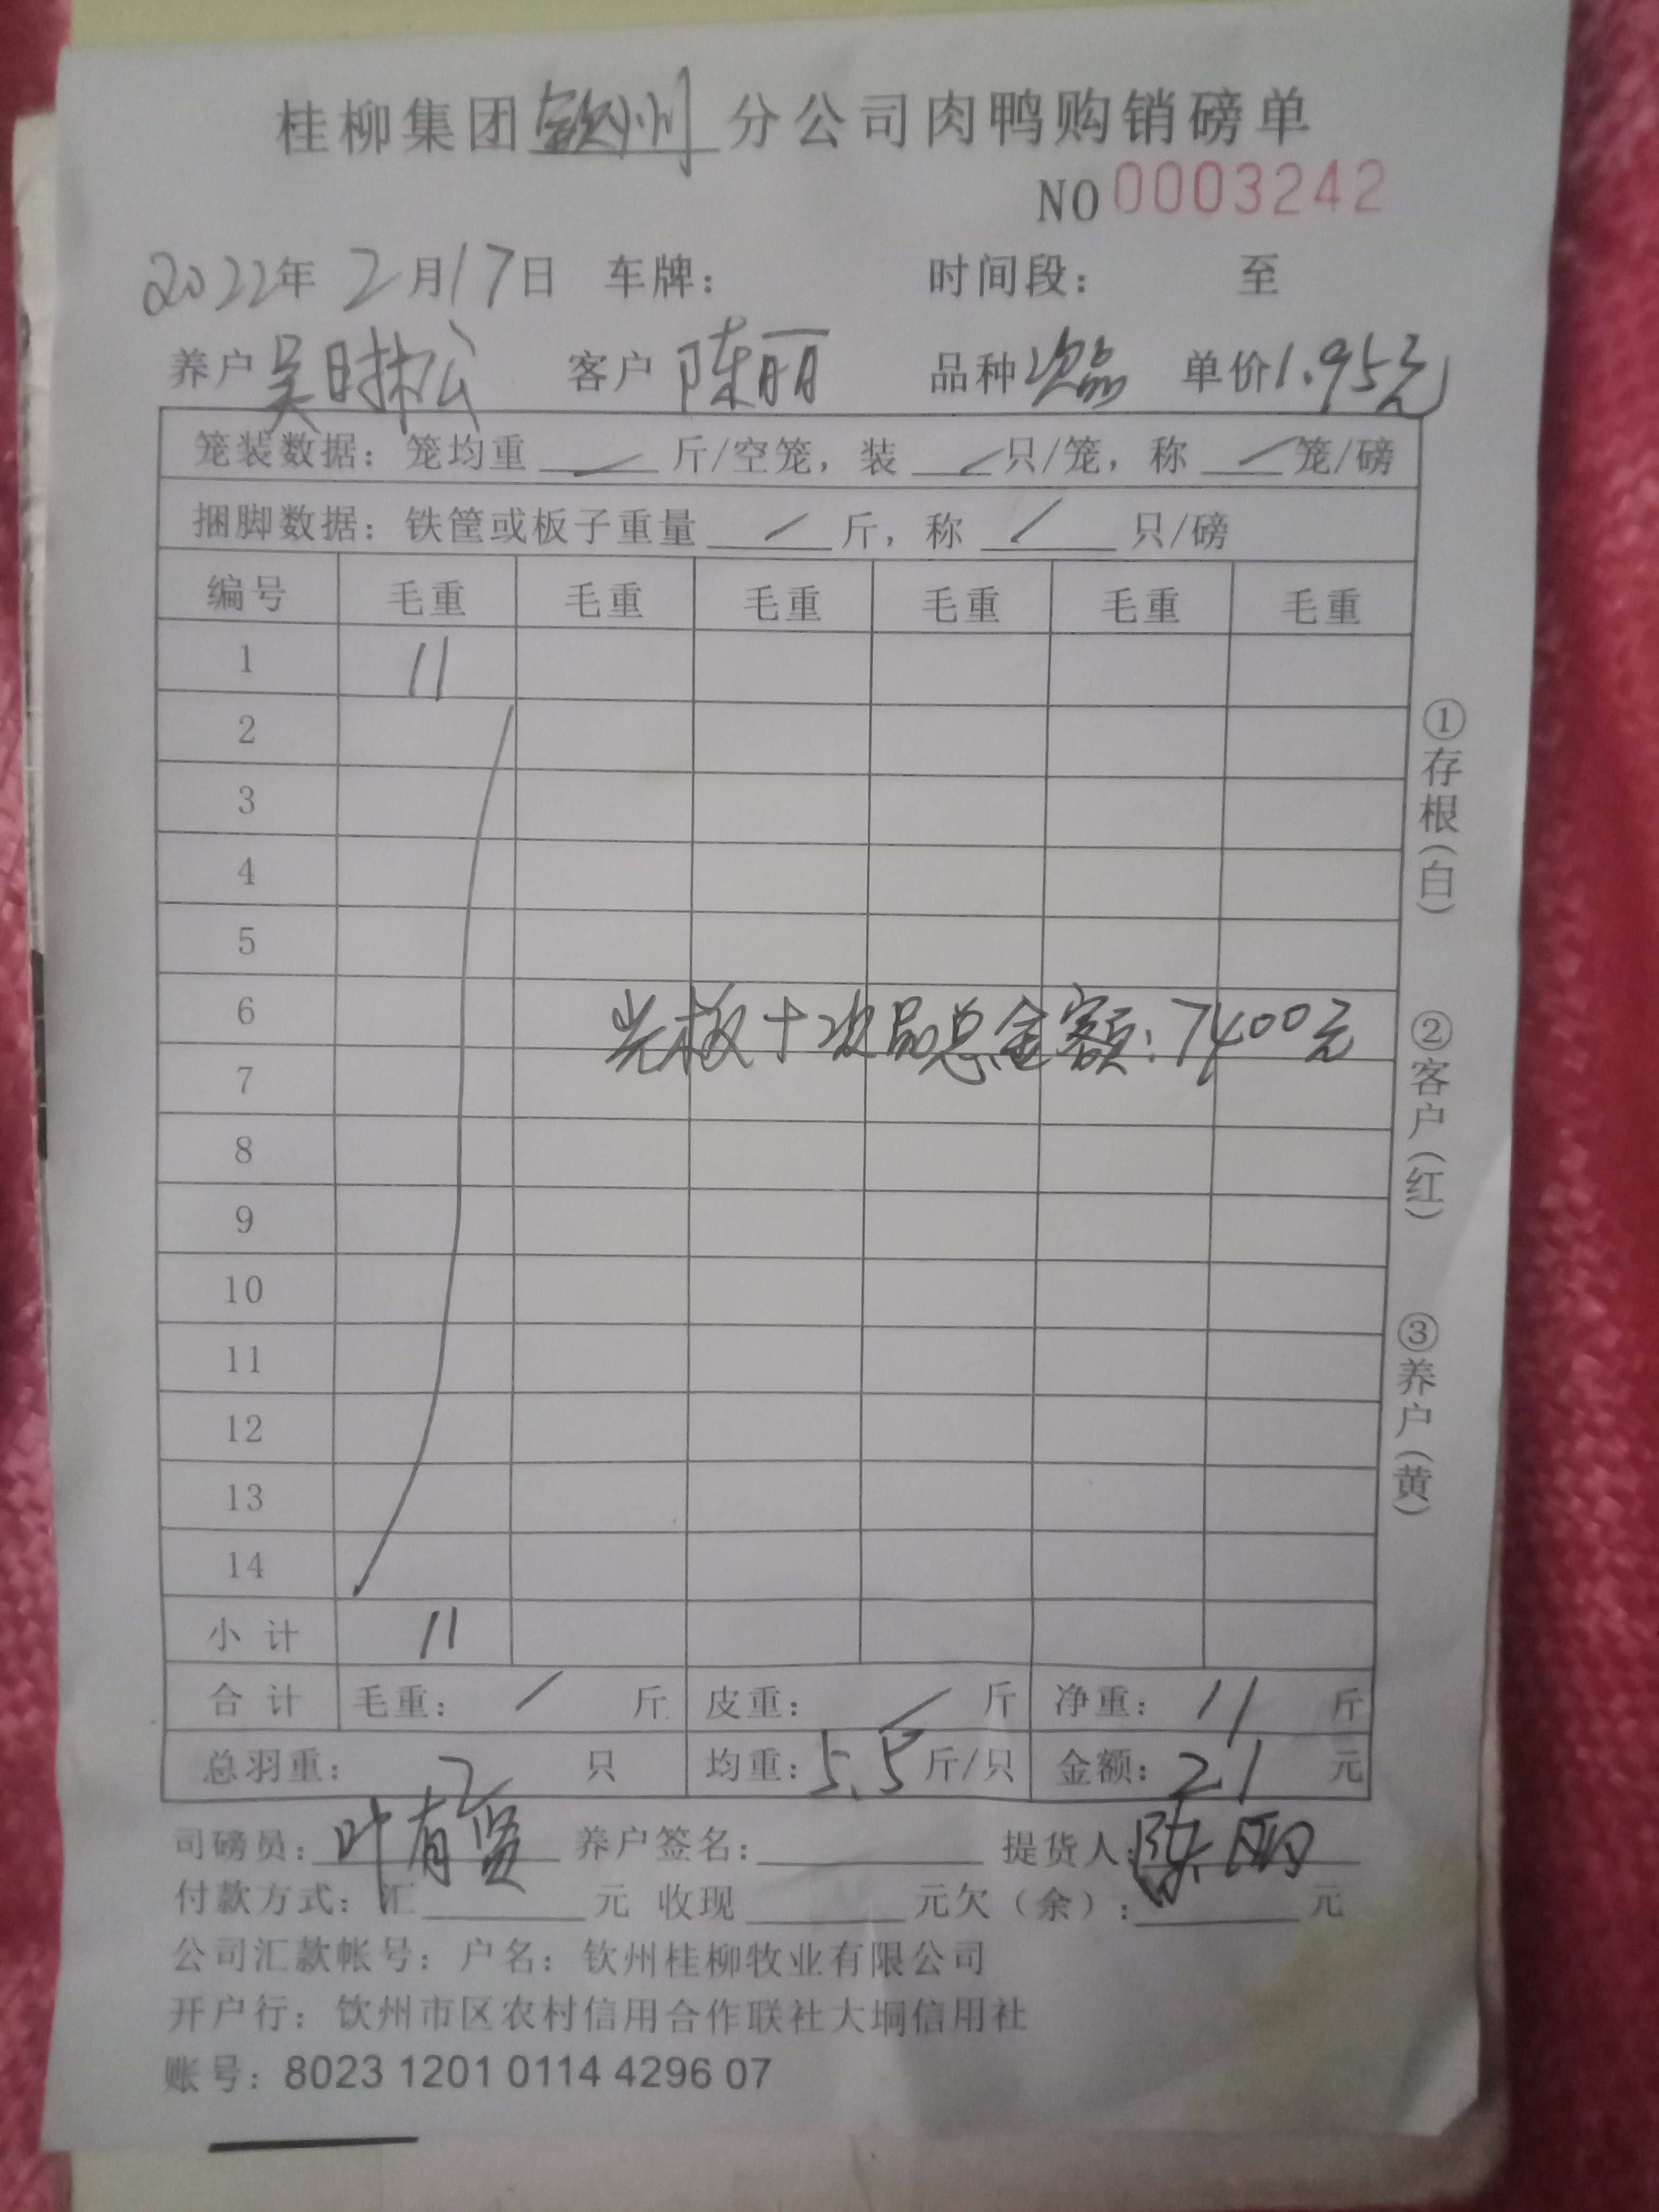 桂柳集团钦州分公司肉鸭购销磅单
NO 0003242
2022年 2月17日 车牌： 时间段： 至
养户 吴时松 客户 陈丽 品种 次品 单价 1.95元
笼装数据：笼均重 / 斤/空笼，装 / 只/笼，称 / 笼/磅
捆脚数据：铁筐或板子重量 / 斤，称 / 只/磅
编号 毛重 毛重 毛重 毛重 毛重 毛重
1 11
2
3
4
5
6
光板+次品总金额：7400元
7
8
9
10
11
12
13
14
小计 11
合计 毛重： / 斤 皮重： / 斤 净重： 11 斤
总羽重： 2 只 均重：5.5斤/只 金额：21 元
司磅员：叶有贤 养户签名： 提货人：陈丽
付款方式：汇 元 收现 元欠（余）： 元
公司汇款帐号：户名：钦州桂柳牧业有限公司
开户行：钦州市区农村信用合作联社大垌信用社
账号：8023 1201 0114 4296 07
①存根（白）
②客户（红）
③养户（黄）